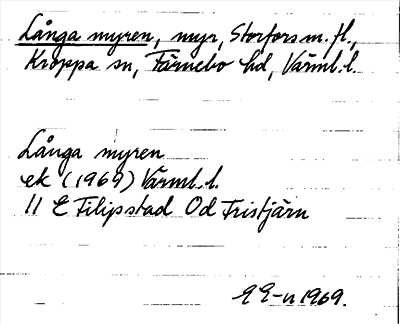 Långa myren, myr, Storfors m. fl.,
Kroppa sn, Färnebo hd, Värml. l.
Långa myren
ek (1969) Värml. l.
11 E Filipstad 0 d Tristjärn
1969.